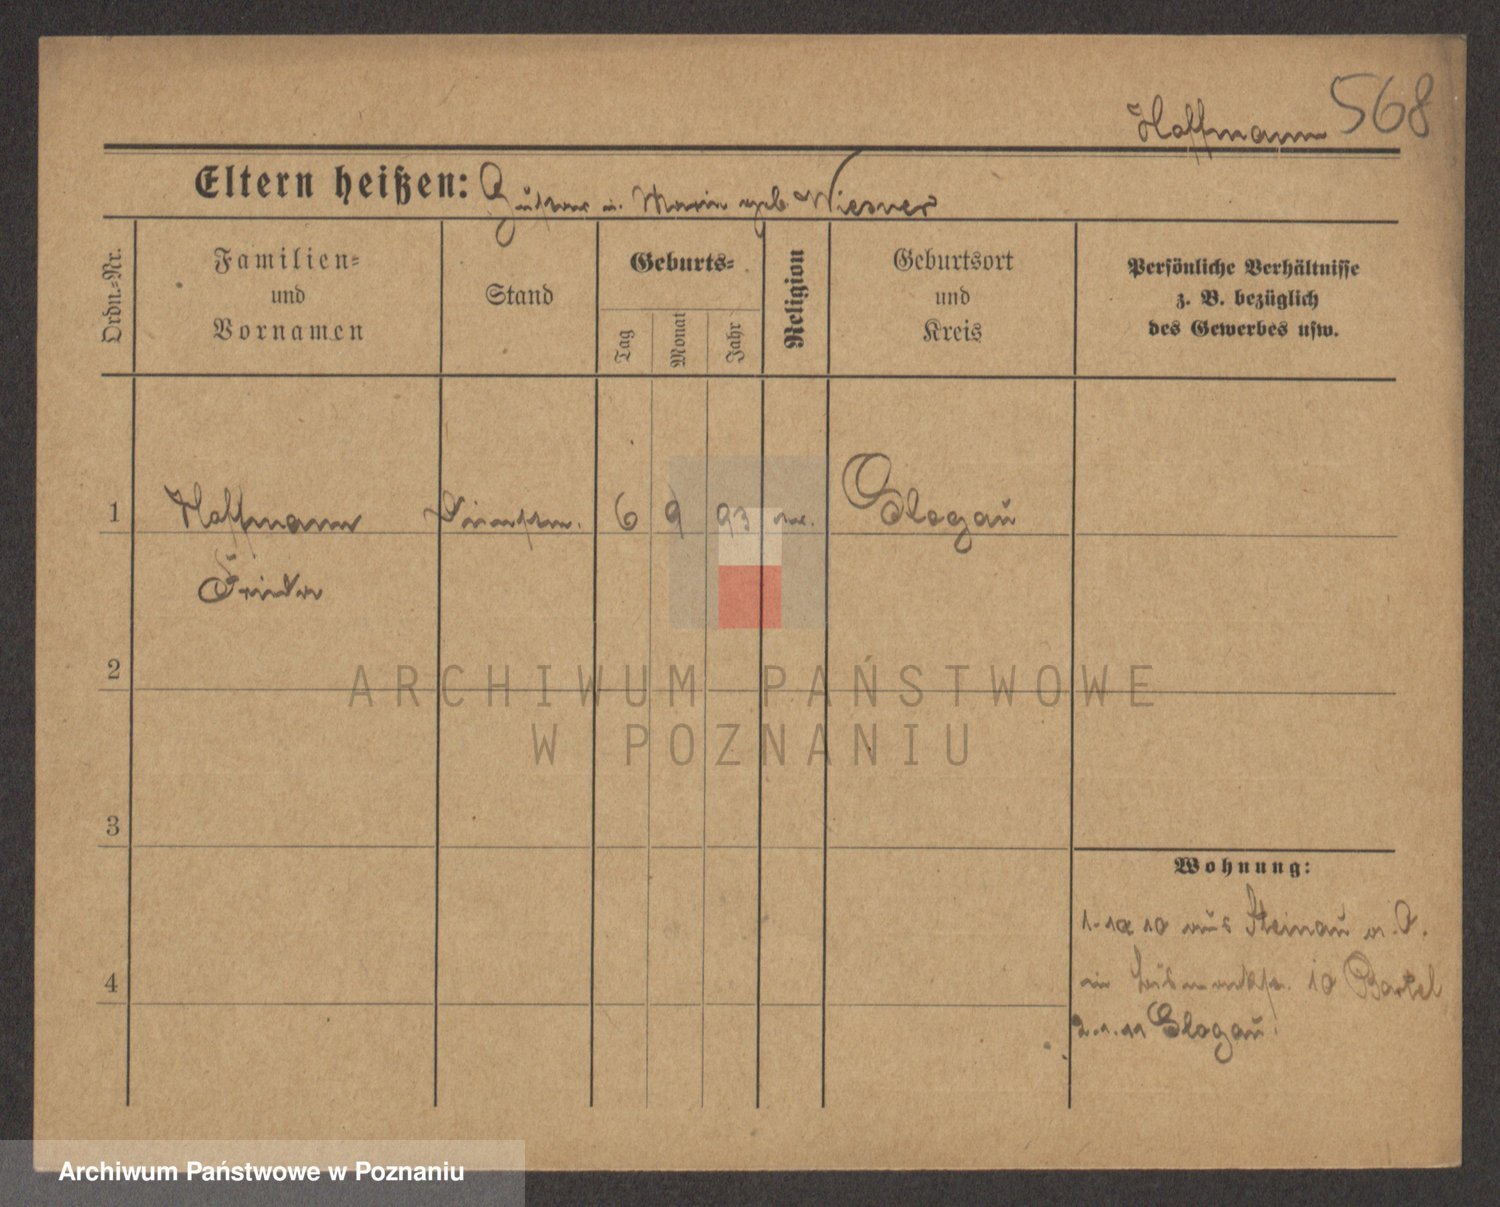 Hoffmann 568
Eltern heißen: Gustav u. Marie geb. Wiesner
Ordn.=Nr.
Familien=
und
Vornamen
Stand
Geburts=
Tag
Monat
Jahr
Religion
Geburtsort
und
Kreis
Persönliche Verhältnisse
z. B. bezüglich
des Gewerbes usw.
1 Hoffmann 6 9 93 ev. Glogau
Frieda
2
3
4
Wohnung:
1.10 10 aus Steinau a. O.
in 10 Bartel
2.1.11 Glogau.
ARCHIWUM PAŃSTWOWE
W POZNANIU
Archiwum Państwowe w Poznaniu